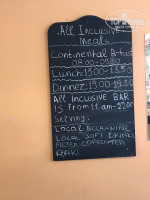 All Inclusive
Meals
Continental B.fast
08:00-09:30
Lunch:13:00-13:50
Dinner:
All INCLUSIVE BAR
IS From 11 am-22:00
Serving:
Local BEER-WINE
Local SOFT DRINKS
FILTER COFFEE-TEA
RAKI